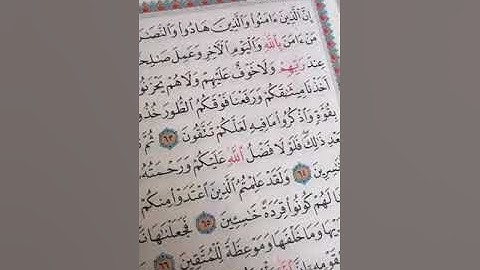 إِنَّ ٱلَّذِينَ ءَامَنُوا۟ وَٱلَّذِينَ هَادُوا۟ وَٱلنَّصَـٰرَ
مَنْ ءَامَنَ بِٱللَّهِ وَٱلْيَوْمِ ٱلْـَٔاخِرِ وَعَمِلَ صَـٰلِحًا
عِندَ رَبِّهِمْ وَلَا خَوْفٌ عَلَيْهِمْ وَلَا هُمْ يَحْزَنُو
أَخَذْنَا مِيثَـٰقَكُمْ وَرَفَعْنَا فَوْقَكُمُ ٱلطُّورَ خُذُو
بِقُوَّةٍ وَٱذْكُرُوا۟ مَا فِيهِ لَعَلَّكُمْ تَتَّقُونَ ٦٣ ثُمَّ
بَعْدِ ذَٰلِكَ فَلَوْلَا فَضْلُ ٱللَّهِ عَلَيْكُمْ وَرَحْمَتُهُۥ
سِرِينَ ٦٤ وَلَقَدْ عَلِمْتُمُ ٱلَّذِينَ ٱعْتَدَوْا۟ مِنكُمْ
نَا لَهُمْ كُونُوا۟ قِرَدَةً خَـٰسِـِٔينَ ٦٥ فَجَعَلْنَـٰهَا نَ
يْهَا وَمَا خَلْفَهَا وَمَوْعِظَةً لِّلْمُتَّقِينَ ٦٦